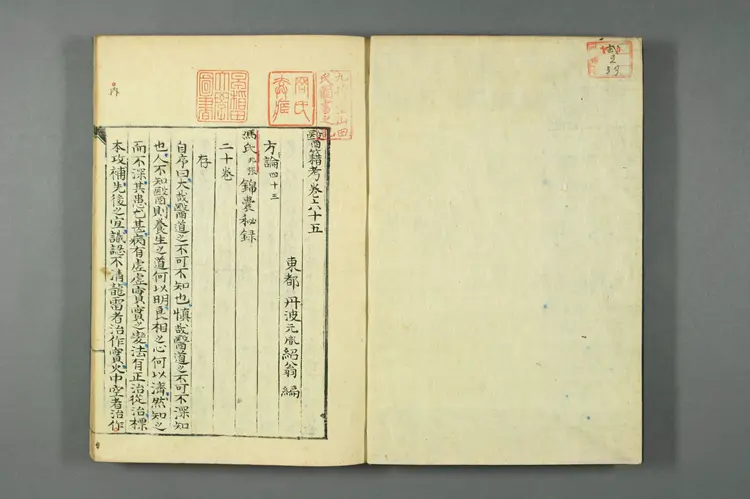 醫籍考卷六十五
東都 丹波元胤紹翁 編
方論四十三
馮氏兆張錦囊秘録
二十卷
存
自序曰大哉醫道之不可不知也慎哉醫道之不可不深知
也人不知醫則養生之道何以明良相之心何以濟然知之
而不深其患也甚病有虚虚實實之變法有正治從治標
本攻補先後之宜識認不清龍雷者治作實火中空者治作
早稲田大學圖書